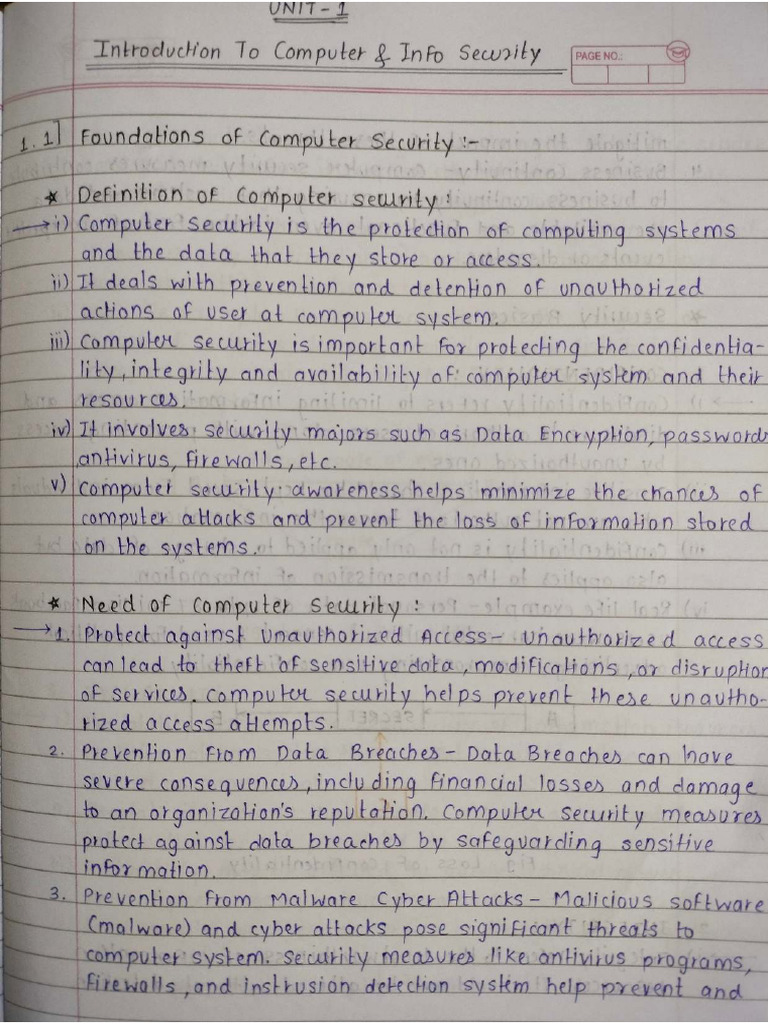 UNIT-1
Introduction To Computer & Info Security
PAGE NO.:
1.1] Foundations of Computer Security :-
* Definition of Computer security :
→ i) Computer Security is the protection of computing systems
and the data that they store or access.
ii) It deals with prevention and detention of unauthorized
actions of user at computer system.
iii) Computer security is important for protecting the confidentia-
lity, integrity and availability of computer system and their
resources.
iv) It involves security majors such as Data Encryption, passwords
antivirus, firewalls, etc.
v) Computer security awareness helps minimize the chances of
computer attacks and prevent the loss of information stored
on the systems.
* Need of Computer Security :
→ 1. Protect against Unauthorized Access- Unauthorized access
can lead to theft of sensitive data, modifications, or disruption
of services. Computer security helps prevent these unautho-
rized access attempts.
2. Prevention from Data Breaches - Data Breaches can have
severe consequences, including financial losses and damage
to an organization's reputation. Computer security measures
protect against data breaches by safeguarding sensitive
information.
3. Prevention from Malware Cyber Attacks - Malicious software
(malware) and cyber attacks pose significant threats to
computer system. Security measures like antivirus programs,
firewalls, and instrusion detection system help prevent and